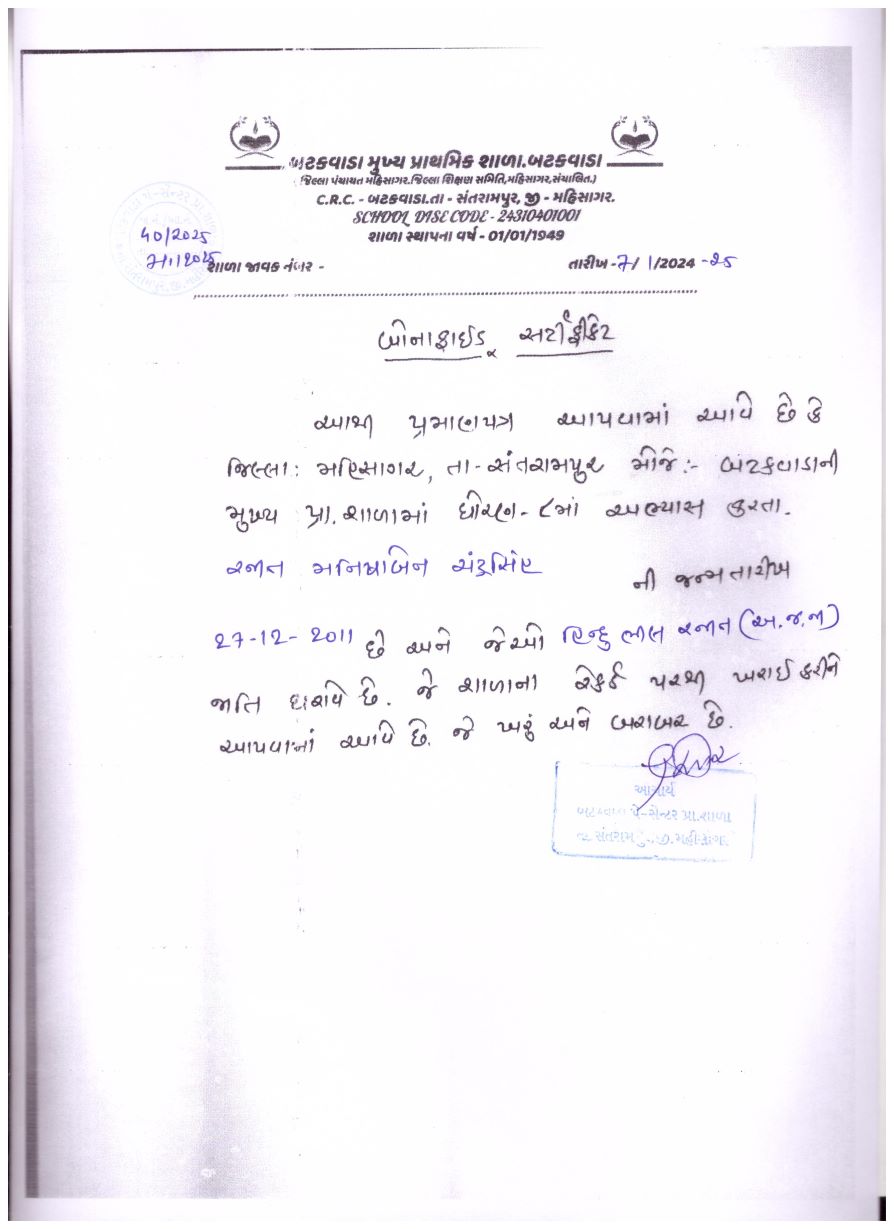 બટકવાડા મુખ્ય પ્રાથમિક શાળા.બટકવાડા
(જિલ્લા પંચાયત મહિસાગર.જિલ્લા શિક્ષણ સમિતિ,મહિસાગર,સંચાલિત.)
C.R.C. - બટકવાડા.તા - સંતરામપુર, જી - મહિસાગર.
SCHOOL DISE CODE - 24310401001
શાળા સ્થાપના વર્ષ - 01/01/1949
40/2025
7/1/2025
શાળા જાવક નંબર -
તારીખ -7/1/2024-25
બોનાફાઈડ સર્ટીફીકેટ
આથી પ્રમાણપત્ર આપવામાં આવે છે કે
જિલ્લા: મહિસાગર, તા-સંતરામપુર મોજે:- બટકવાડાની
મુખ્ય પ્રા. શાળામાં ધોરણ-૮માં અભ્યાસ કરતા.
મનિષાબેન ચંદ્રસિંહ ની જન્મ તારીખ
27-12-2011 છે અને જેઓ હિન્દુ ભીલ (અ.જ.જા)
જાતિ ધરાવે છે. જે શાળાના રેકર્ડ પરથી ખરાઈ કરીને
આપવામાં આવે છે. જે ખરું અને બરાબર છે.
આચાર્ય
પે-સેન્ટર પ્રા.શાળા